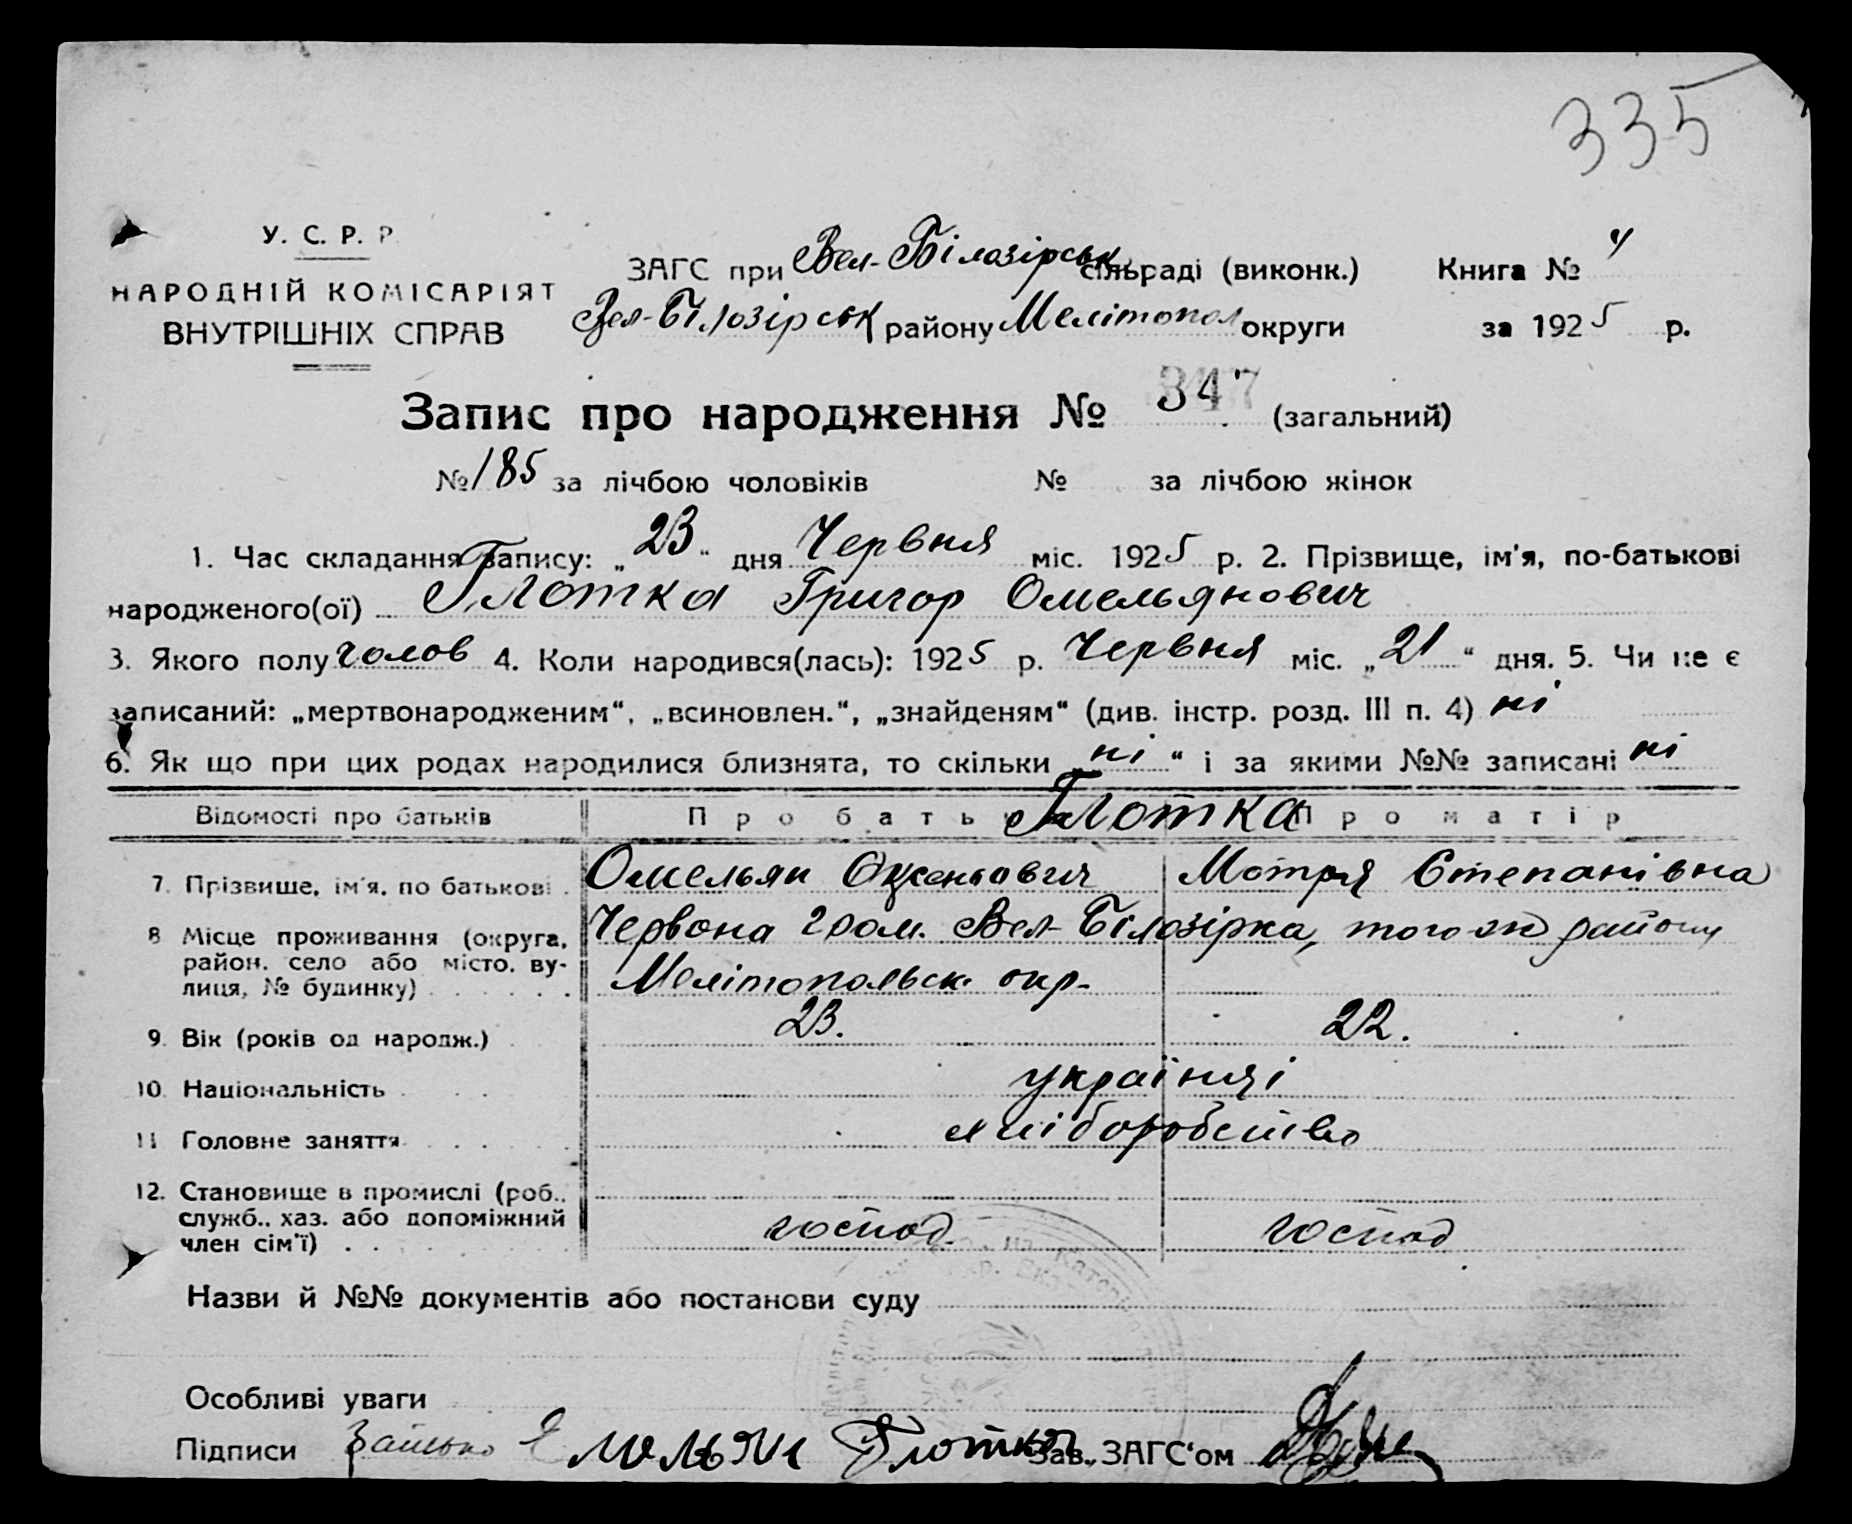 335
У. С. Р. Р.
НАРОДНІЙ КОМІСАРІЯТ
ВНУТРІШНІХ СПРАВ
ЗАГС при Вел-Білозірськ сільраді (виконк.) Книга № 4
Вел-Білозірськ району Мелітопол округи за 1925 р.
Запис про народження № 347 (загальний)
№ 185 за лічбою чоловіків № за лічбою жінок
1. Час складання запису: „23“ дня Червня міс. 1925 р. 2. Прізвище, ім'я, по-батькові
народженого(ої) Глотка Григор Омельянович
3. Якого полу чолов 4. Коли народився(лась): 1925 р. Червня міс. „21“ дня. 5. Чи не є
записаний: „мертвонародженим“, „всиновлен.“, „знайденям“ (див. інстр. розд. III п. 4) ні
6. Як що при цих родах народилися близнята, то скільки „ні“ і за якими №№ записані ні
Відомості про батьків Про батька Про матір
Глотка
7. Прізвище, ім'я, по батькові . Омельян Мотря Степанівна
8 Місце проживання (округа, район, село або місто, вулиця, № будинку) Червона гром. Вел-Білозірка, того ж району
Мелітопольськ. окр.
9. Вік (років од народж.) 23. 22.
10. Національність українці
11 Головне заняття хліборобство
12. Становище в промислі (роб.,
служб., хаз. або допоміжний
член сім'ї) господ. господ
Назви й №№ документів або постанови суду
Особливі уваги
Підписи Батько Емельян Глотка Зав. „ЗАГС'ом